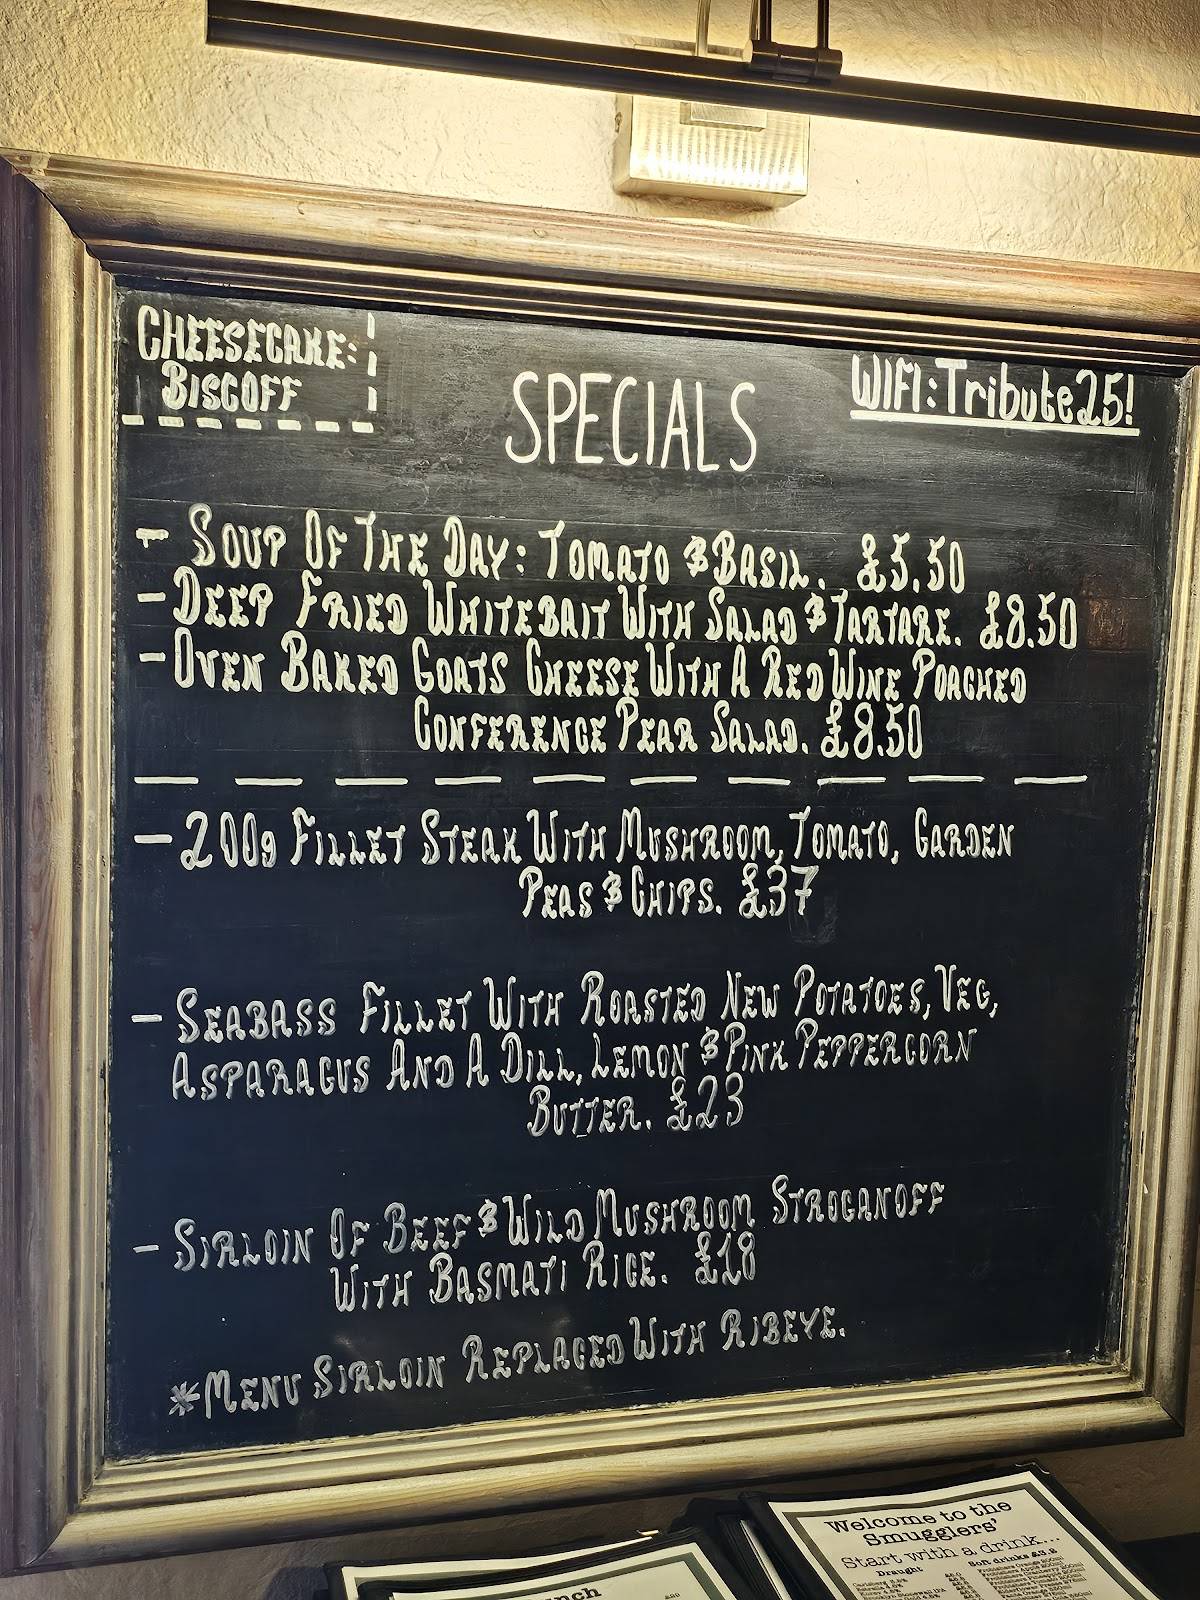 CHEESECAKE:
BISCOFF
SPECIALS
WIFI: Tribute25!
- SOUP OF THE DAY: TOMATO & BASIL. £5.50
- DEEP FRIED WHITEBAIT WITH SALAD & TARTARE. £8.50
- OVEN BAKED GOATS CHEESE WITH A RED WINE POACHED
CONFERENCE PEAR SALAD. £8.50
- 200g FILLET STEAK WITH MUSHROOM, TOMATO, GARDEN
PEAS & CHIPS. £37
- SEABASS FILLET WITH ROASTED NEW POTATOES, VEG,
ASPARAGUS AND A DILL, LEMON & PINK PEPPERCORN
BUTTER. £23
- SIRLOIN OF BEEF & WILD MUSHROOM STROGANOFF
WITH BASMATI RICE. £18
*MENU SIRLOIN REPLACED WITH RIBEYE.
Welcome to the
Smugglers'
Start with a drink...
Draught
Soft drinks